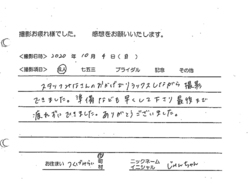 撮影お疲れ様でした。 感想をお願いいたします。
<撮影日時> 2020 年 10 月 9 日( )
<撮影項目> 成人 七五三 ブライダル 記念 その他
スタッフのみなさんのおかげでリラックスしながら撮影
できました。準備なども早くして下さり最後まで
疲れずにできました。ありがとうございました。
お住まい つくばみらい 市 ニックネーム イニシャル じゅんちゃん